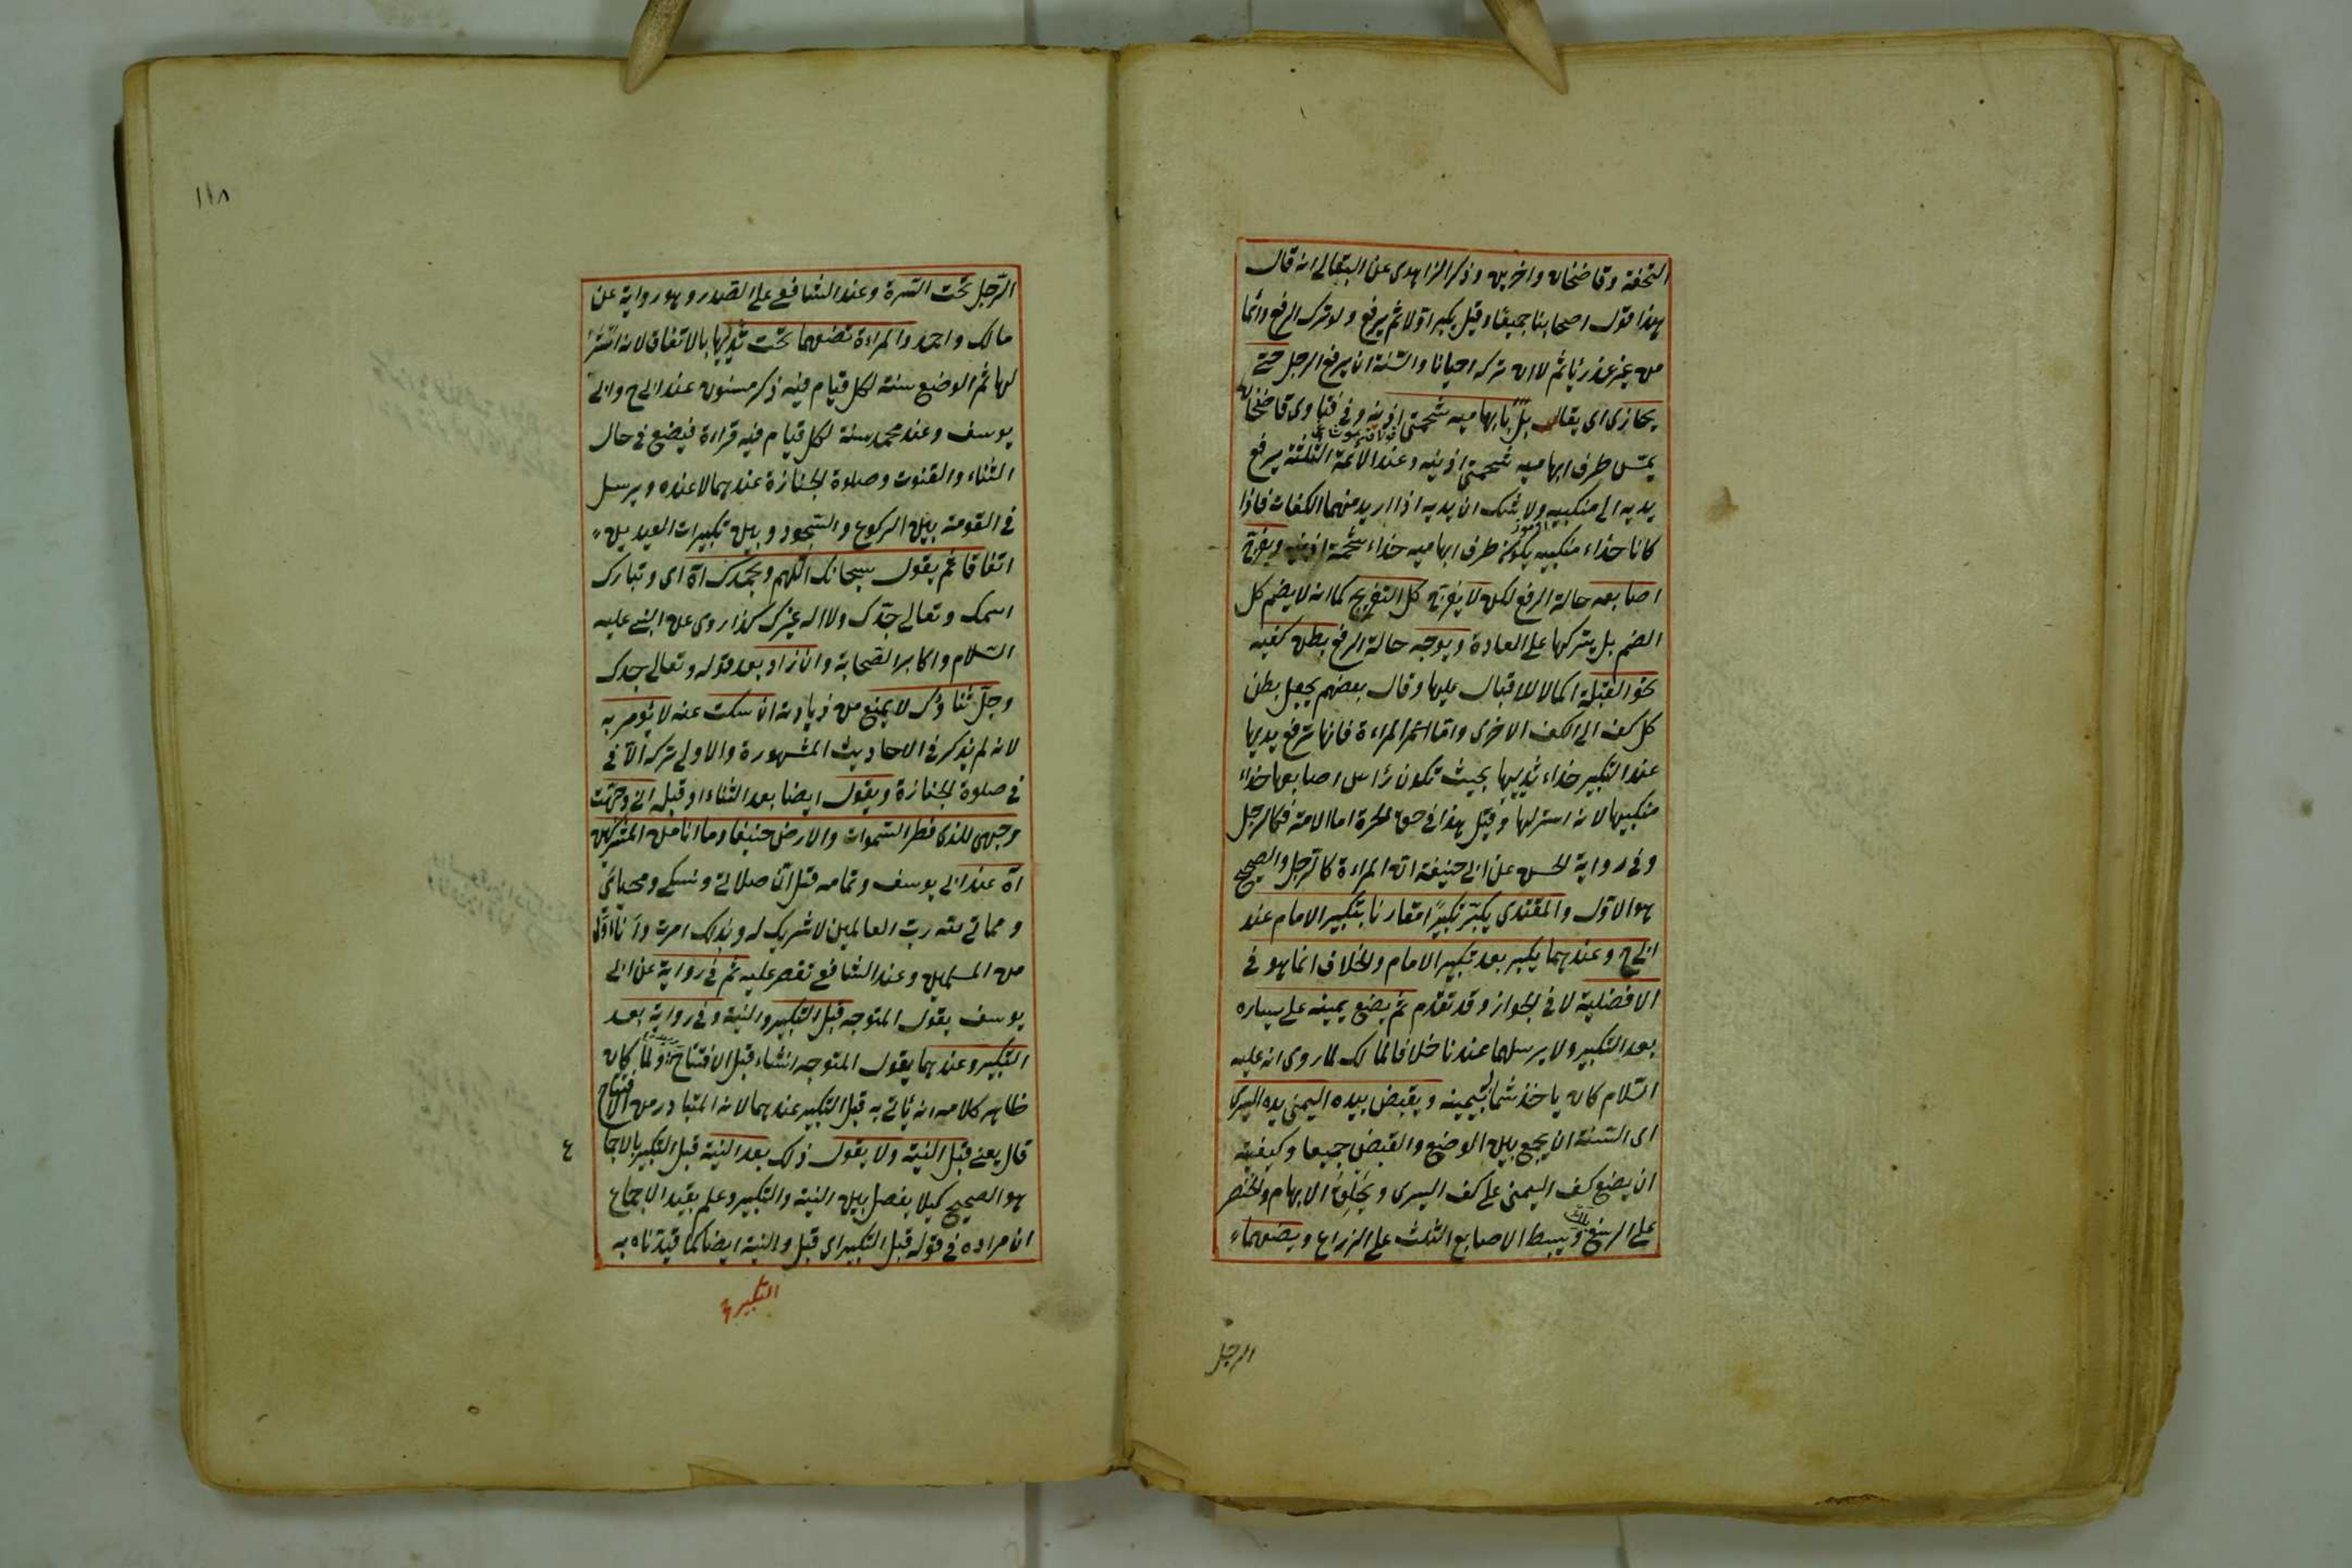 التحفة وقاضخان واخرين وذكر الزاهدى عن البقالى انه قال
هذا قول اصحابنا جميعا وقيل يكبر اولا ثم يرفع ولو ترك الرفع دائما
من غير عذر يأثم لا ان تركه احيانا والسنة ان يرفع الرجل حتى
يحازى اى يقابل بابهاميه شحمتى اذنيه وفى فتاوى قاضخان
يمس طرف ابهاميه شحمتى اذنيه وعند الأئمة الثلثة يرفع
يديه الى منكبيه ولا شك ان يديه اذا اريد منهما الكفات فاذا
كانا حذاء منكبيه يكون طرف ابهاميه حذاء شحمة اذنيه ويفرج
اصابعه حالة الرفع لكن لا يفرج كل التفريج كما انه لا يضم كل
الضم بل يتركها على العادة ويوجه حالة الرفع بطن كفيه
نحو القبلة اكمالا للاقبال عليها وقال بعضهم يجعل بطن
كل كف الى الكف الاخرى واما المراءة فانها ترفع يديها
عند التكبير حذاء ثدييها بحيث تكون رأس اصابعها حذاء
منكبيها لانه استر لها وقيل هذا فى حق الحرة اما الامة فكالرجل
وفى رواية الحسن عن ابى حنيفة ان المراءة كالرجل والصحيح
هو الاول والمقتدى يكبر تكبيرا مقارنا بتكبير الامام عند
ابى ح وعندهما يكبر بعد تكبير الامام والخلاف انما هو فى
الافضلية لا فى الجواز وقد تقدم ثم يضع يمينه على يساره
بعد التكبير ولا يرسلهما عندنا خلافا لمالك لما روى انه عليه
السلام كان ياخذ شماله بيمينه ويقبض بيده اليمنى يده اليسرى
اى السنة ان يجمع بين الوضع والقبض جميعا وكيفيته
ان يضع كف اليمنى على كف اليسرى ويحلق الابهام والخنصر
على الرسغ ويبسط الاصابع الثلث على الزراع ويضعهما
الرجل
١١٨
الرجل تحت السرة وعند الشافعى على الصدر وهو رواية عن
مالك واحمد والمراءة تضعهما تحت ثدييها بالاتفاق لانه استر
لها ثم الوضع سنة لكل قيام فيه ذكر مسنون عند ابى ح وابى
يوسف وعند محمد سنة لكل قيام فيه قراءة فيضع فى حال
الثناء والقنوت وصلوة الجنازة عندهما لا عنده ويرسل
فى القومة بين الركوع والسجود وبين تكبيرات العيدين
اتفاقا ثم يقول سبحانك اللهم وبحمدك آه اى وتبارك
اسمك وتعالى جدك ولا اله غيرك كذا روى عن النبى عليه
السلام واكابر الصحابة وان زاد بعد قوله وتعالى جدك
وجل ثناؤك لا يمنع من زيادته ان سكت عنه لا يؤمر به
لانه لم يذكر فى الاحاديث المشهورة والاولى تركه الا فى
فى صلوة الجنازة ويقول ايضا بعد الثناء او قبله انى وجهت
وجهى للذى فطر السموات والارض حنيفا وما انا من المشركين
آه عند ابى يوسف وتمامه قل ان صلاتى ونسكى ومحياى
ومماتى لله رب العالمين لا شريك له وبذلك امرت وانا اول
من المسلمين وعند الشافعى تقصر عليه ثم فى رواية عن ابى
يوسف يقول المتوجه قبل التكبير والنية وفى رواية بعد
التكبير وعندهما يقول المتوجه ان شاء قبل الافتتاح ولما كان
ظاهر كلامه انه يأتى به قبل التكبير عندهما لانه المتبادر من الافتتاح
قال يعنى قبل النية ولا يقول ذلك بعد النية قبل التكبير بالاجا
ع
هو الصحيح كيلا يفصل بين النية والتكبير وعلم بقيد الاجماع
ان مراده فى قوله قبل التكبير اى قبل والنية ايضا كما قيدناه به
التكبير